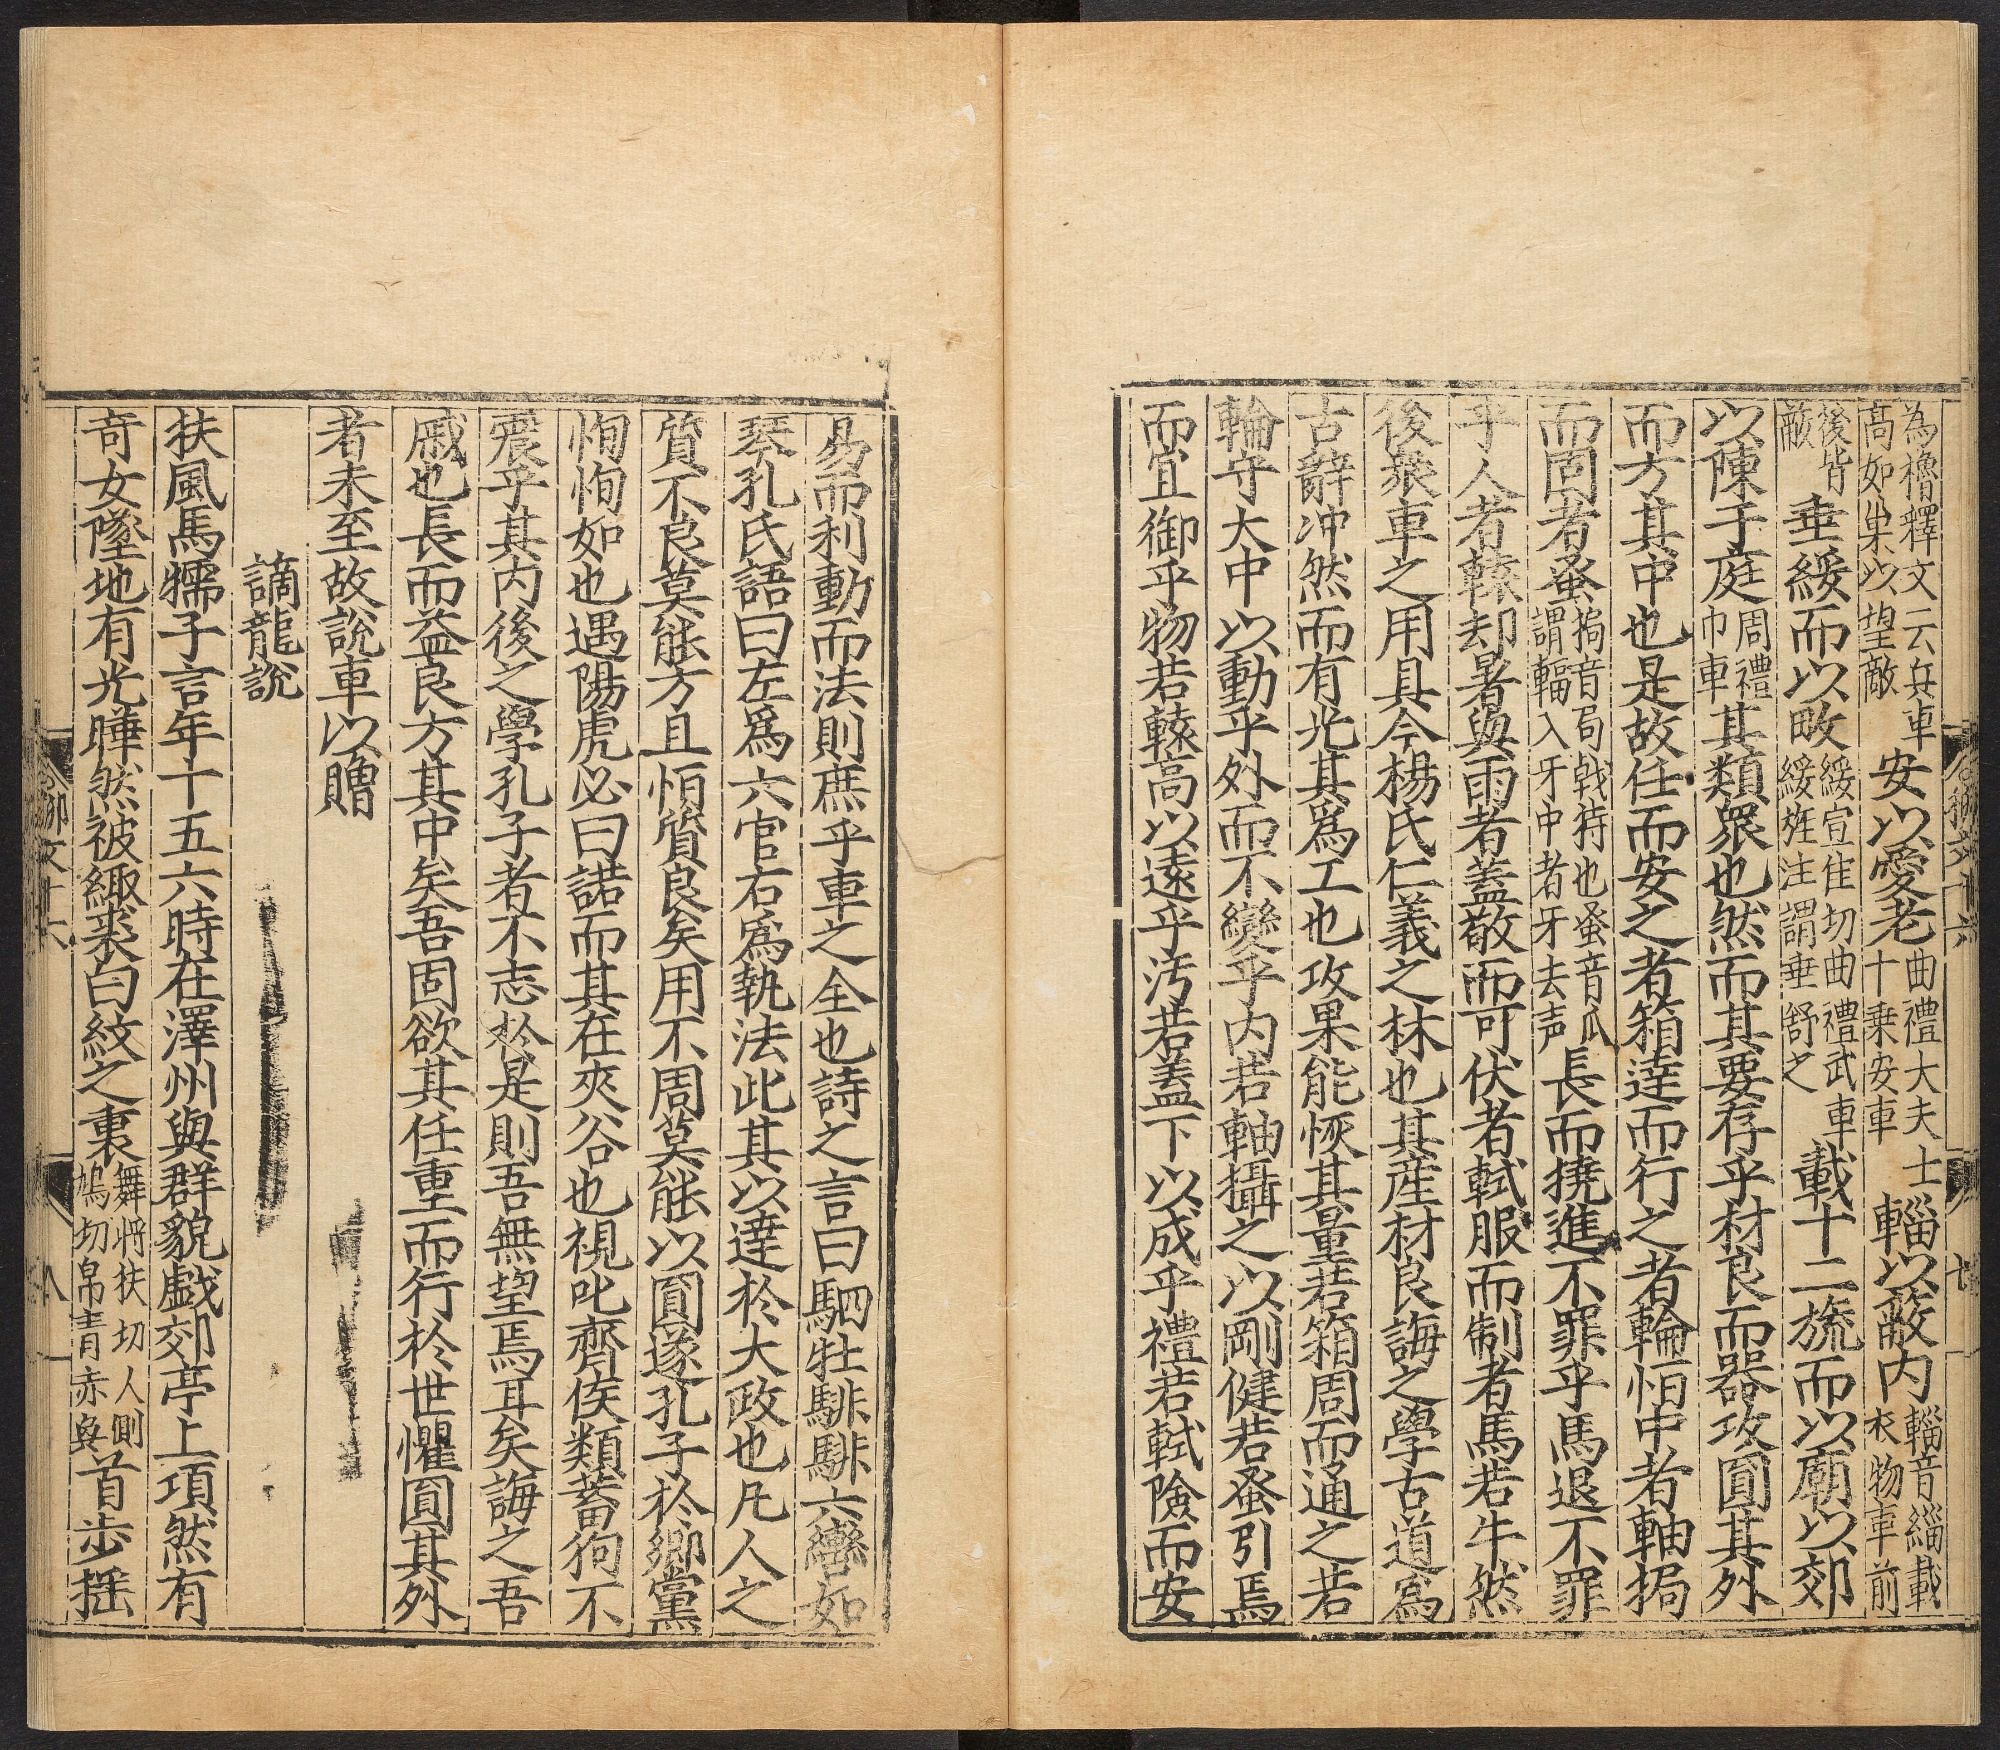 為櫓釋文云兵車高如巢以望敵安以愛老曲禮大夫士十乗安車輜以蔽内輜音緇載衣物車前
後皆蔽垂綏而以畋綏宣隹切曲禮武車綏旌注謂垂舒之載十二旒而以廟以郊
以陳于庭周禮巾車其類衆也然而其要存乎材良而器攻圎其外
而方其中也是故任而安之者箱達而行之者輪恒中者軸挶
而固者蚤挶音局戟持也蚤音瓜謂輻入牙中者牙去声長而撓進不罪乎馬退不罪
乎人者轅却暑與雨者蓋敬而可伏者軾服而制者馬若牛然
後衆車之用具今楊氏仁義之林也其産材良誨之學古道爲
古辭冲然而有光其爲工也攻果能恢其量若箱周而通之若
輪守大中以動乎外而不變乎内若軸攝之以剛健若蚤引焉
而宜御乎物若轅高以遠乎汚若蓋下以成乎禮若軾險而安
易而利動而法則庶乎車之全也詩之言曰駟牡騑騑六轡如
琴孔氏語曰左爲六官右爲執法此其以達於大政也凡人之
質不良莫能方且恒質良矣用不周莫能以圓遂孔子於鄉黨
恂恂如也遇陽虎必曰諾而其在夾谷也視叱齊侯類蓄狗不
震乎其内後之學孔子者不志於是則吾無望焉耳矣誨之吾
戚也長而益良方其中矣吾固欲其任重而行於世懼圓其外
者未至故說車以贈
謫龍說
扶風馬孺子言年十五六時在澤州與群貌戯郊亭上頃然有
奇女墜地有光曄然被緅裘白紋之裏舞将扶切人側鳩切帛青赤與首步揺
柳文十六
八